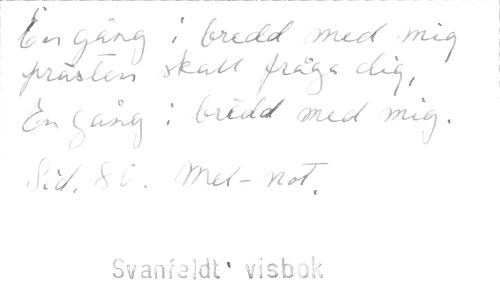 En gång i bredd med mig
prästen skall fråga dig,
En gång i bredd med mig.
Sid. 80. Mel-not.
Svanfeldt' visbok